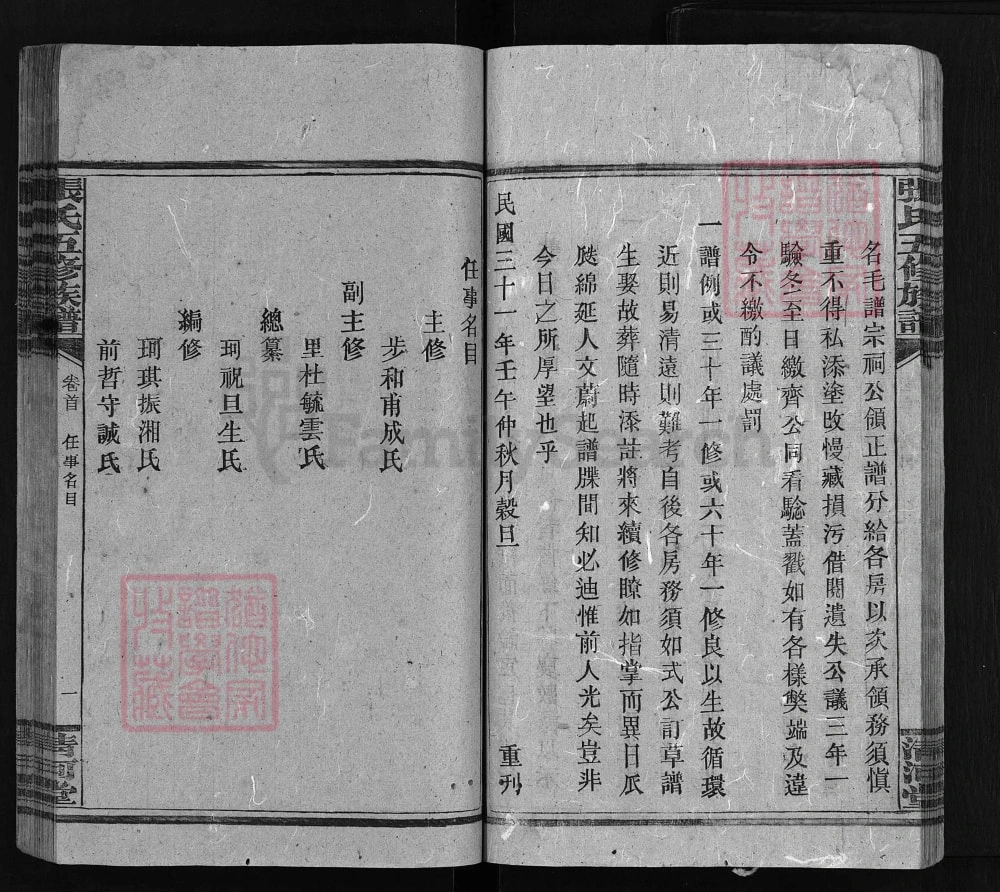 張氏五修族譜
名毛譜宗祠公領正譜分給各房以次承領務須慎
重不得私添塗改慢藏損污借閱遺失公議三年一
驗冬至日繳齊公同看騐蓋戳如有各樣獘端及違
令不繳酌議處罰
一譜例或三十年一修或六十年一修良以生故循環
近則易清遠則難考自後各房務須如式公訂草譜
生娶故葬隨時添註將來續修瞭如指掌而異日瓜
瓞綿延人文蔚起譜牒間知必迪惟前人光矣豈非
今日之所厚望也乎
民國三十一年壬午仲秋月穀旦 重刋
任事名目
主修
步和甫成氏
副主修
里杜毓雲氏
總纂
珂祝旦生氏
編修
珂琪振湘氏
前哲守誠氏
張氏五修族譜 卷首 任事名目 一 清河堂
清河堂
FamilySearch